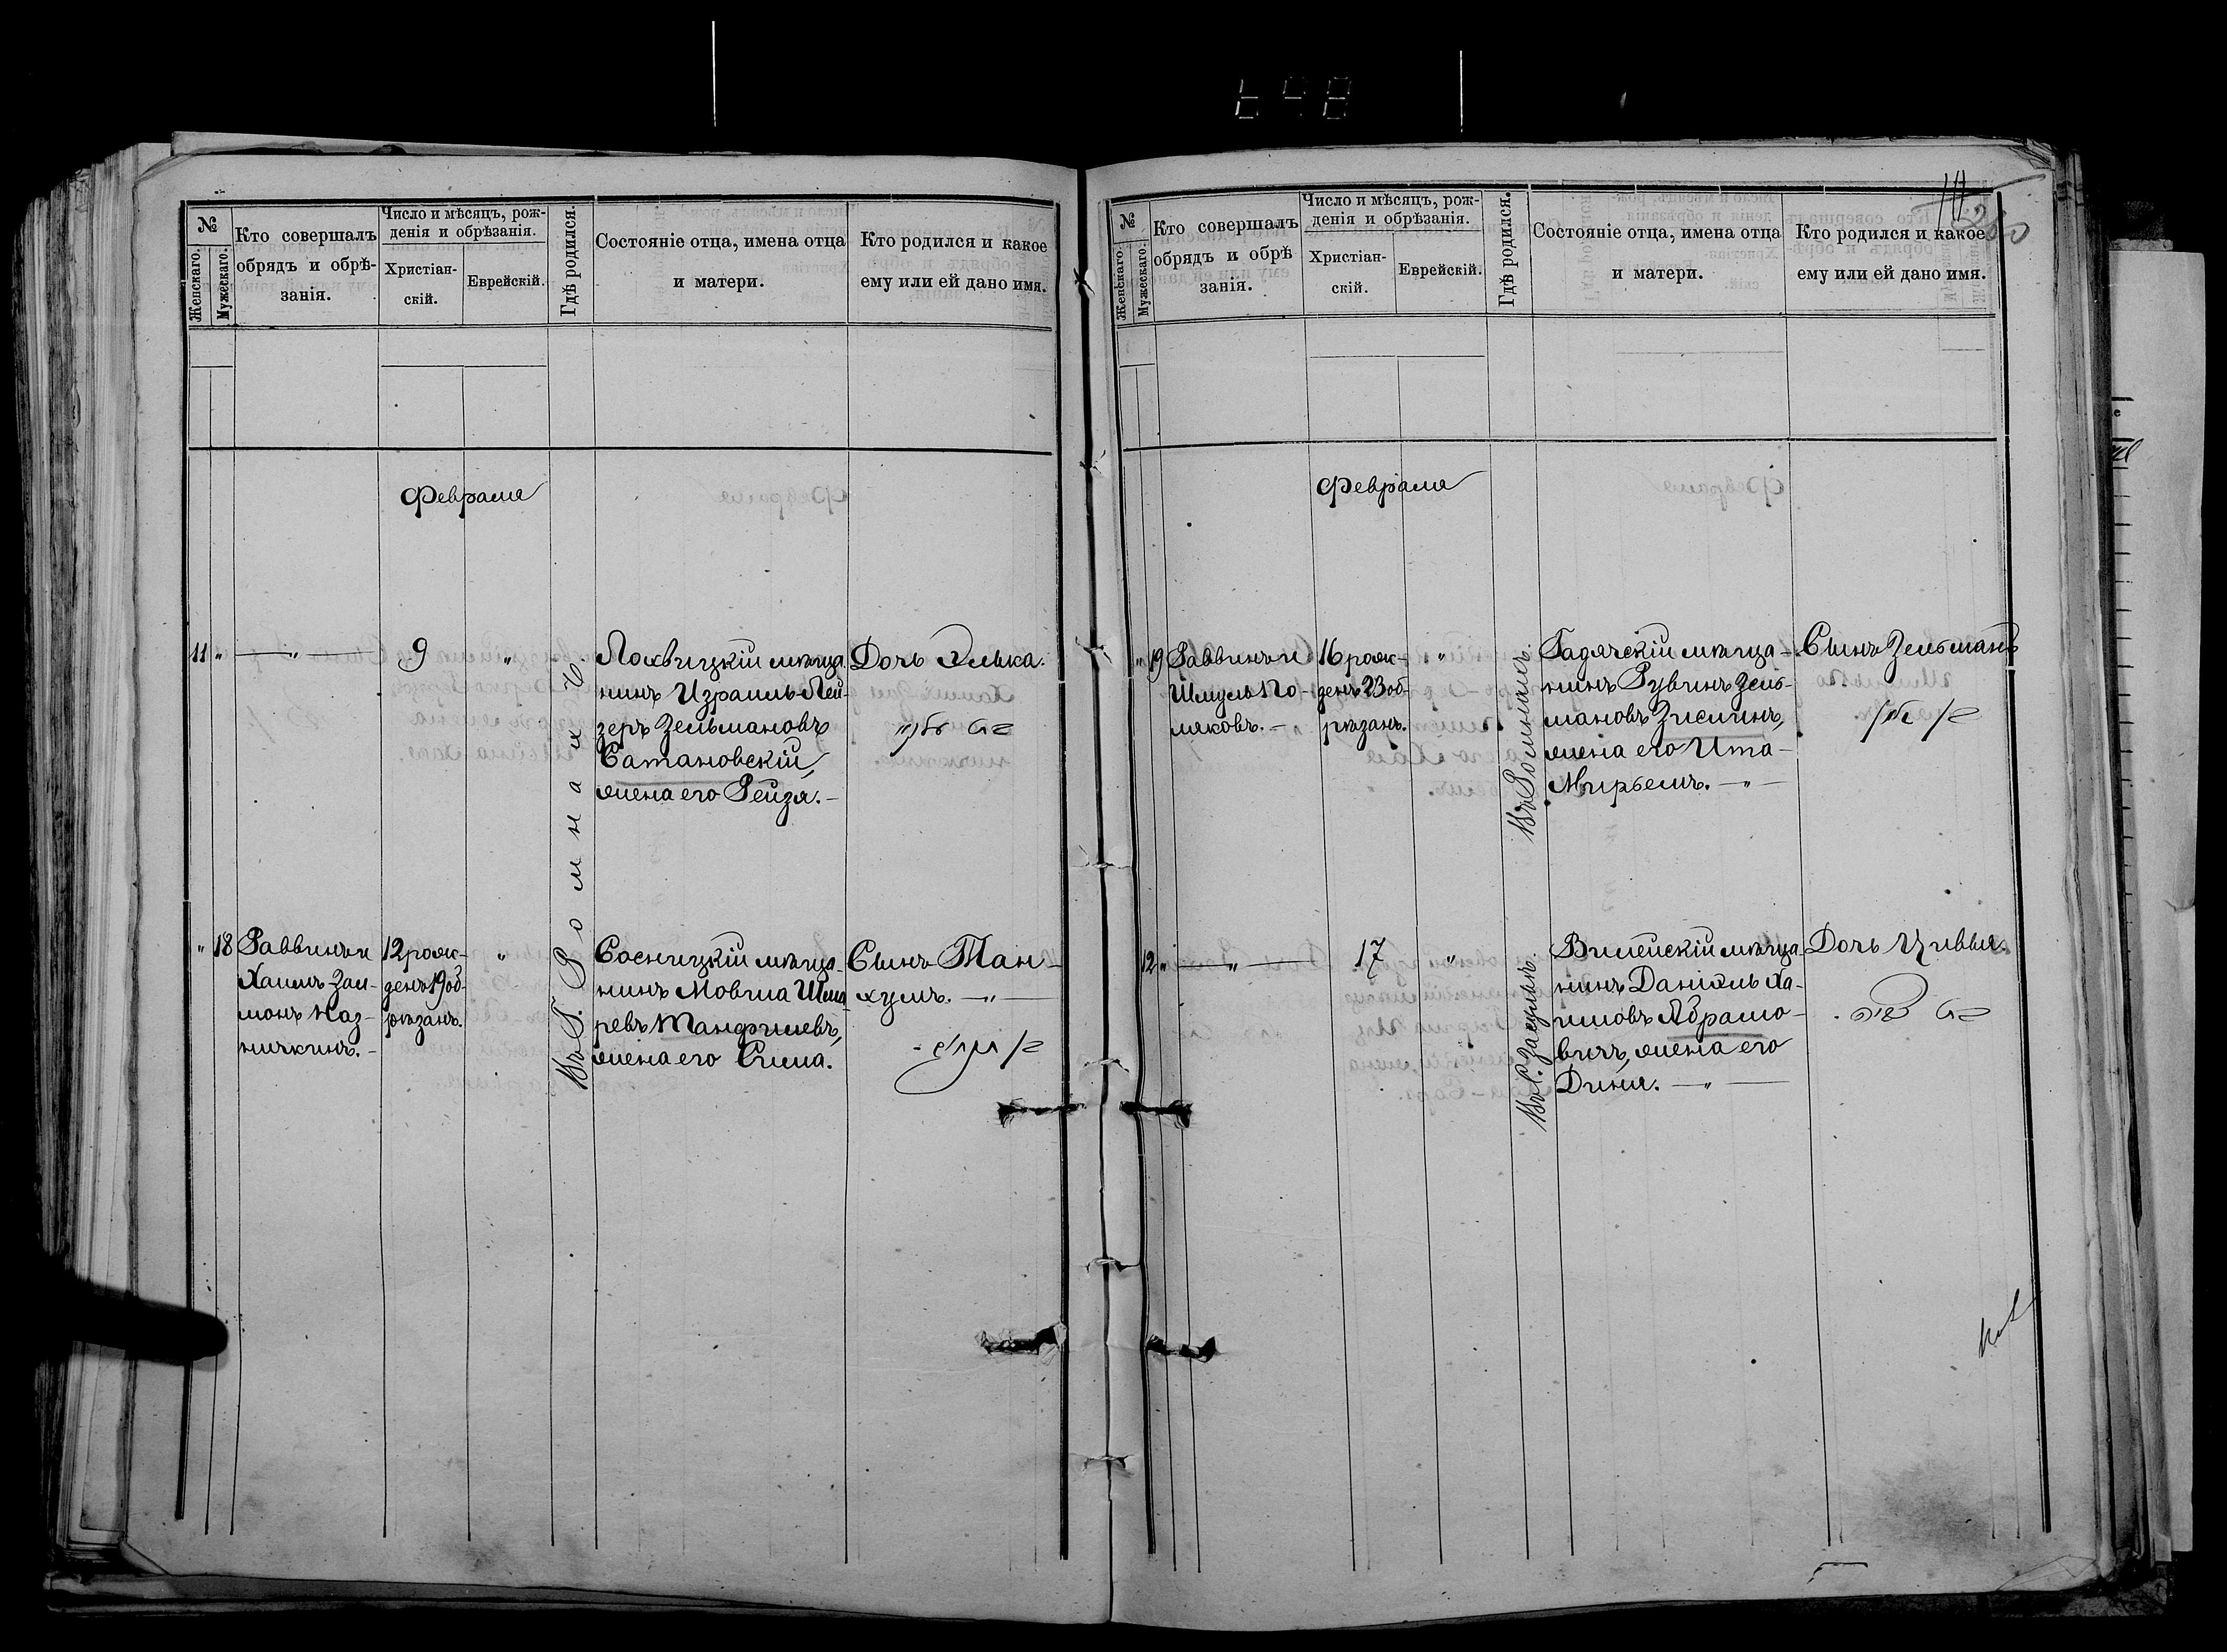 698
111
280
№
Женскаго.
Мужескаго.
Кто совершалъ
обрядъ и обрѣ-
занія.
Число и мѣсяцъ, рож-
денія и обрѣзанія.
Христіан-
скій.
Еврейскій.
Гдѣ родился.
Состояніе отца, имена отца
и матери.
Кто родился и какое
ему или ей дано имя.
Февраля
11 " — " — 9 "
Въ Г. Ромнахъ.
Лохвицкій мѣща
нинъ Израиль-Лей-
зеръ Зельмановъ
Сатановскій,
жена его Рейзя. –
Дочь Элька.
" 18
Раввинъ и
Хаимъ Зал-
монъ Каз-
ничкинъ. –
12 рож-
денъ 19 об-
рѣзанъ.
"
Сосницкій мѣща-
нинъ Мовша Шма
ревъ Манфишевъ,
жена его Сима.
Сынъ Тан-
хумъ. — " —
№
Женскаго.
Мужескаго.
Кто совершалъ
обрядъ и обрѣ
занія.
Число и мѣсяцъ, рож-
денія и обрѣзанія.
Христіан-
скій.
Еврейскій.
Гдѣ родился.
Состояніе отца, имена отца
и матери.
Кто родился и какое
ему или ей дано имя.
Февраля
" 19
Раввинъ и
Шмуль По-
ляковъ. –
16 рож-
денъ 23 об-
рѣзанъ.
"
Въ Ромнахъ.
Гадячскій мѣща-
нинъ Рувинъ Зель-
мановъ Зисминъ,
жена его Ита-
Мирьемъ. — " —
Сынъ Зельманъ
12 " — " — 17 "
Въ С. Засульѣ.
Вилейскій мѣща-
нинъ Даніэль Ха-
имовъ Абрамо-
вичъ, жена его
Диня. — " —
Дочь Цивья.